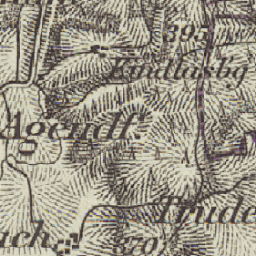 395
Findlasbg
Agendf.
Trude
ach
370